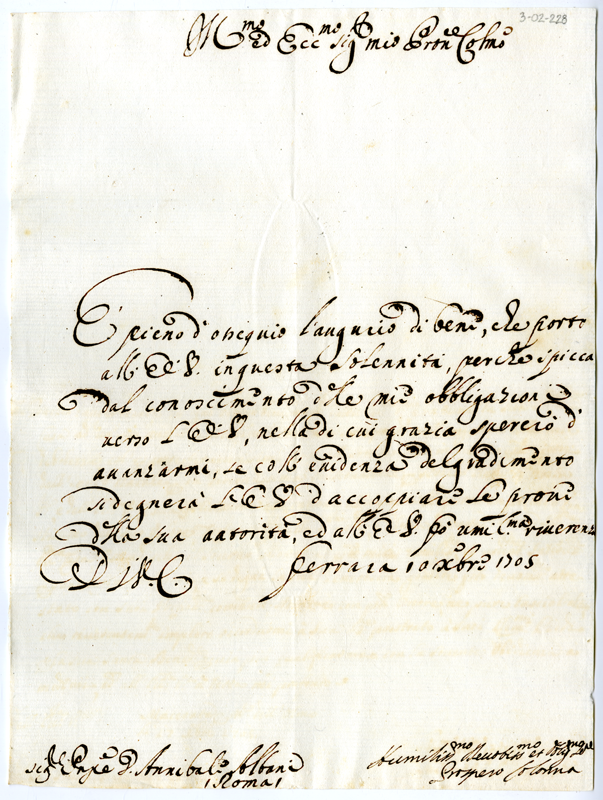 3-02-228
Ill.mo ed Ecc.mo Sig.r mio Pron.e Col.mo
È pieno d'ossequio l'augurio di bene, che porto
all'E.V. in questa Solennità, perche spicca
dal conoscimento delle mie obbligazioni
verso L'E.V., nella di cui grazia sperero d'
avanzarmi, se coll'evidenza del gradimento
si degnerà L'E.V. d'accoppiare le prove
della sua autorità, ed all'E.V. fo umil.ma riverenza
D.V.E. Ferrara 10 Xbre 1705
Sig.r D. Annibale Albani
(Roma)
Humiliss.mo Devotiss.mo et
Prospero Colonna